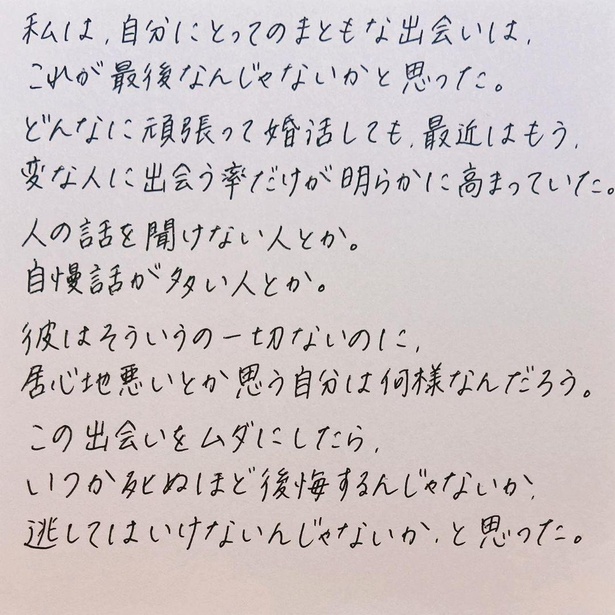 私は、自分にとってのまともな出会いは、
これが最後なんじゃないかと思った。
どんなに頑張って婚活しても、最近はもう、
変な人に出会う率だけが明らかに高まっていた。
人の話を聞けない人とか。
自慢話が多い人とか。
彼はそういうの一切ないのに、
居心地悪いとか思う自分は何様なんだろう。
この出会いをムダにしたら、
いつか死ぬほど後悔するんじゃないか、
逃してはいけないんじゃないか、と思った。